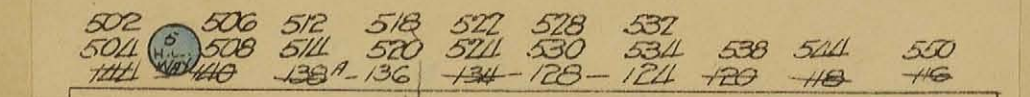 502 506 512 518 522 528 532
504 508 514 520 524 530 534 538 544 550
144 140 138A - 136 - 134 - 128 - 124 - 120 - 118 - 116
5
H.L.
WAY